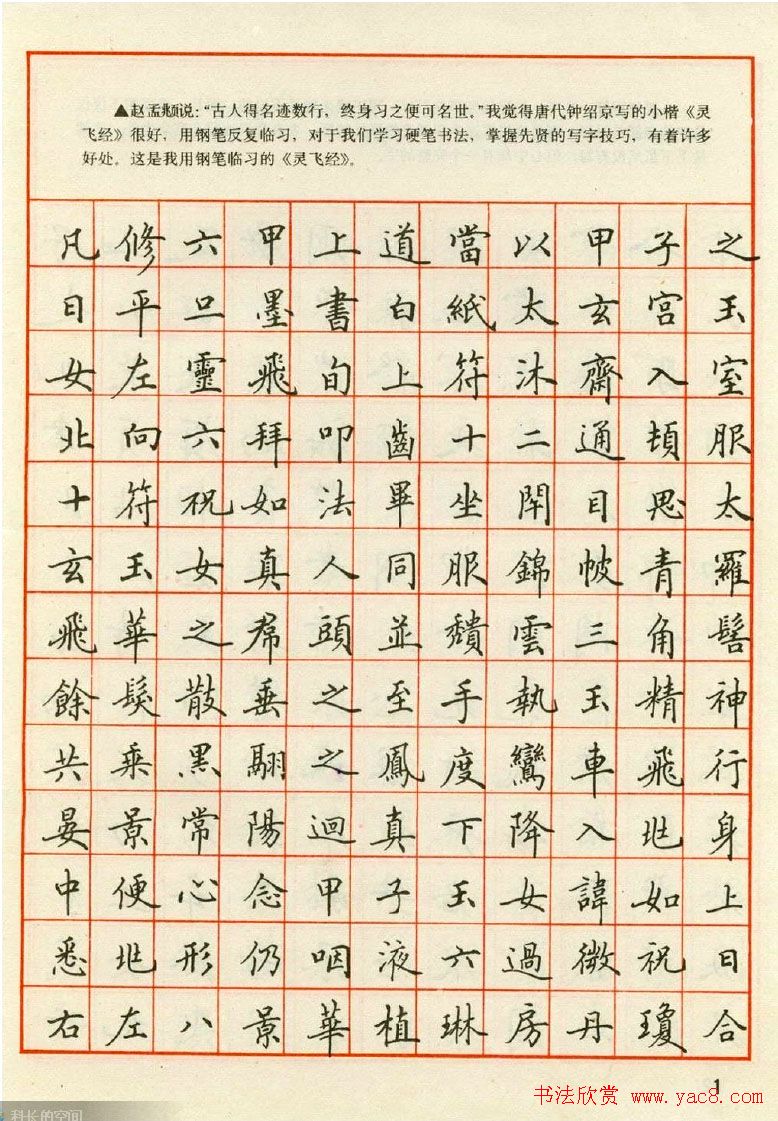 ▲赵孟頫说:“古人得名迹数行,终身习之便可名世。”我觉得唐代钟绍京写的小楷《灵
飞经》很好,用钢笔反复临习,对于我们学习硬笔书法,掌握先贤的写字技巧,有着许多
好处。这是我用钢笔临习的《灵飞经》。
凡修六甲上道當以甲子之
日平旦墨書白紙太玄宮玉
女左靈飛旬上符沐齋入室
北向六拜叩齒十二通頓服
十符祝如法畢坐閉目思太
玄玉女真人同服錦帔青羅
飛華之帬頭並頹雲三角髻
餘髮散垂之至手執玉精神
共乘黑翮之鳳度鸞車飛行
晏景常陽迴真下降入兆身
中便心念甲子玉女諱如上
悉兆形仍咽液六過微祝曰
右左八景華植琳房丹瓊合
1
书法欣赏 www.yac8.com
科长的空间